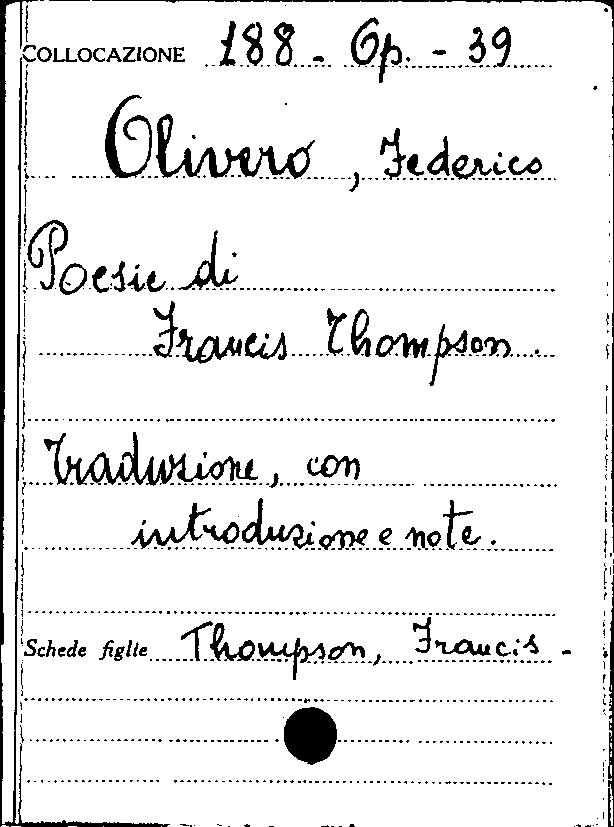 COLLOCAZIONE 188 - Op. - 39
Olivero, Federico
Poesie di
Francis Thompson.
Traduzione, con
introduzione e note.
Schede figlie Thompson, Francis -